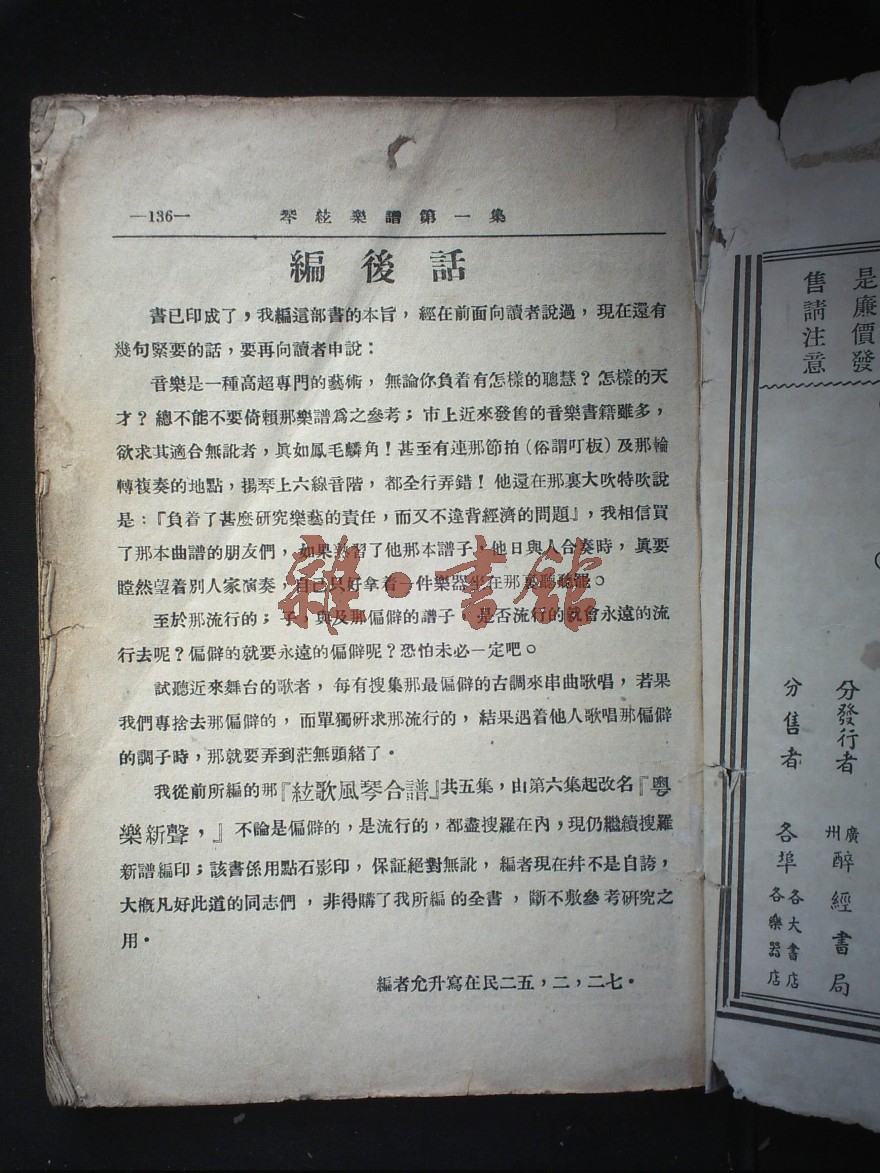 —136—　琴絃樂譜第一集
編後話
書已印成了，我編這部書的本旨，經在前面向讀者說過，現在還有
幾句緊要的話，要再向讀者申說：
音樂是一種高超專門的藝術，無論你負着有怎樣的聰慧？怎樣的天
才？總不能不要倚賴那樂譜爲之參考；市上近來發售的音樂書籍雖多，
欲求其適合無訛者，眞如鳳毛麟角！甚至有連那節拍（俗謂叮板）及那輪
轉複奏的地點，揚琴上六線音階，都全行弄錯！他還在那裏大吹特吹說
是：『負着了甚麼研究樂藝的責任，而又不違背經濟的問題』，我相信買
了那本曲譜的朋友們，如果熟習了他那本譜子，他日與人合奏時，眞要
瞠然望着別人家演奏，自己只好拿着一件樂器坐在那裏聽聽罷。
至於那流行的；子，與及那偏僻的譜子，是否流行的就會永遠的流
行去呢？偏僻的就要永遠的偏僻呢？恐怕未必一定吧。
試聽近來舞台的歌者，每有搜集那最偏僻的古調來串曲歌唱，若果
我們專捨去那偏僻的，而單獨研求那流行的，結果遇着他人歌唱那偏僻
的調子時，那就要弄到茫無頭緒了。
我從前所編的那『絃歌風琴合譜』共五集，由第六集起改名『粵
樂新聲，』不論是偏僻的，是流行的，都盡搜羅在內，現仍繼續搜羅
新譜編印；該書係用點石影印，保証絕對無訛，編者現在幷不是自誇，
大概凡好此道的同志們，非得購了我所編的全書，斷不敷參考研究之
用。
編者允升寫在民二五，二，二七。
雜·書館
是廉價發
售請注意
分發行者　廣州醉經書局
分售者　各埠各大書店各樂器店